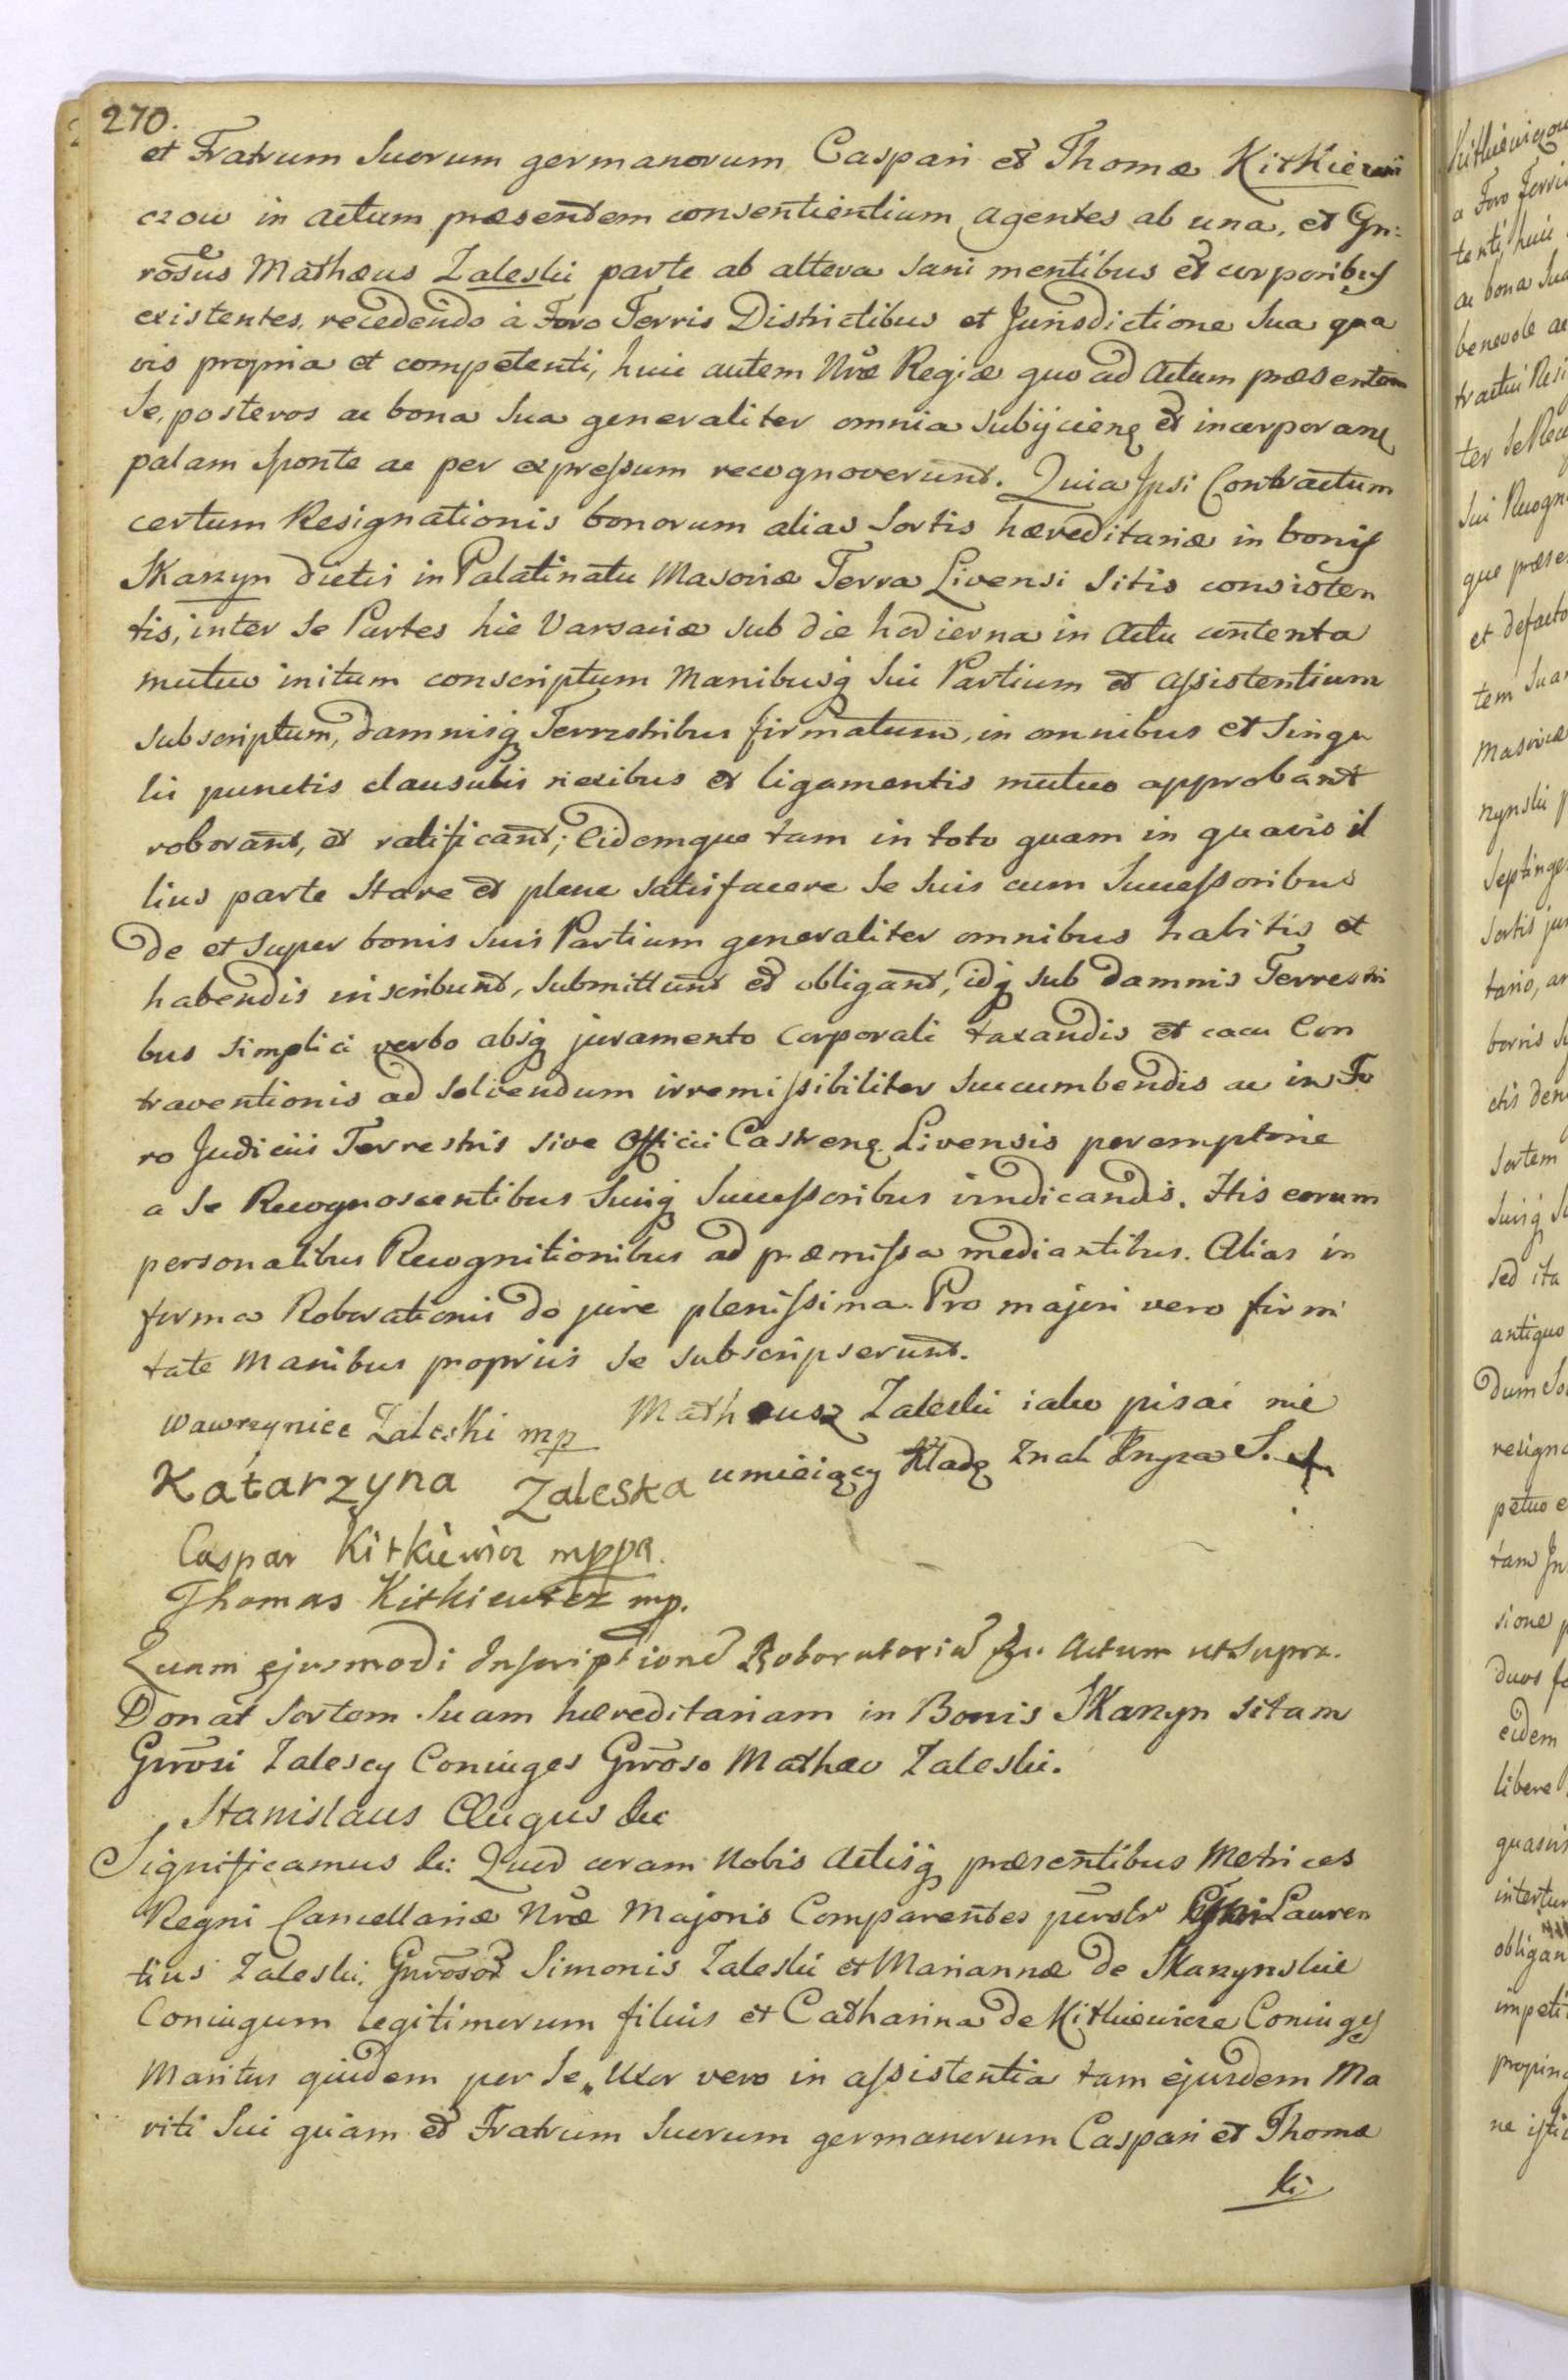 270.
et Fratrum Suorum germanorum Caspari et Thomæ Kitkiewi
czow in actum præsentem consentientium agentes ab una, et Gn:
rosus Mathæus Zaleski parte ab altera sani mentibus et corporibus
existentes, recedendo à Foro Terris Districtibus et Jurisdictione Sua qua
vis propria et competenti, huic autem Nræ Regiæ quo ad Actum præsentem
Se, posteros ac bona Sua generaliter omnia Subijcien et incorporan
palam sponte ac per expressum recognoverunt. Quia Ipsi Contractum
certum Resignationis bonorum alias Sortis hæreditariæ in bonis
Skarzyn dictis in Palatinatu Masoviæ Terra Livensi Sitis consisten
tis, inter Se Partes hic Varsaviæ sub die hodierna in Actu contenta
mutuo initum conscriptum Manibusq Sui Partium et Assistentium
subscriptum, damnisq Terrestribus firmatum, in omnibus et Singu
lis punctis clausulis nexibus et ligamentis mutuo approbant
roborant, et ratificant; Eidemque tam in toto quam in quavis il
lius parte Stare et plene Satisfacere Se Suis cum Successoribus
De et Super bonis Suis Partium generaliter omnibus habitis et
habendis inscribunt, Submittunt et obligant, idq sub damnis Terrestri
bus simplici verbo absq juramento Corporali taxandis et casu Con
traventionis ad Solvendum irremissibiliter Succumbendis ac in Fo
ro Judicii Terrestris sive Officii Castren Livensis peremptorie
a Se Recognoscentibus Suisq Successoribus vindicandis. His eorum
personalibus Recognitionibus ad præmissa mediantibus. Alias in
forma Roborationis de jure plenissima. Pro majori vero firmi
tate Manibus propriis Se Subscripserunt.
Wawrzyniec Zaleski mp Matheusz Zaleski iako pisać nie
Katarzyna Zaleska umieiący Kładę Znak Krzyza S. +
Caspar Kitkiewicz mppa.
Thomas Kitkiewicz mp.
Quam ejusmodi Inscriptione Roboratoria &c. Actum ut Supra.
Donat Sortem Suam hæreditariam in Bonis Skarzyn sitam
Gnrosi Zalescy Coniuges Gnroso Mathæo Zaleski.
Stanislaus Augus &c
Significamus &c: Quod coram Nobis Actisq præsentibus Metrices
Regni Cancellariæ Nræ Majoris Comparentes persolr Lauren
tius Zaleski, Gnrosor Simonis Zaleski et Mariannæ de Skarzynskie
Coniugum legitimorum filius et Catharina de Kitkiewicze Coniuges
Maritus quidem per Se, Uxor vero in assistentia tam ejusdem Ma
riti Sui quam et Fratrum Suorum germanorum Caspari et Thomæ
Ki
Kitkiewiczow
a Foro Terris
tenti, huic
ac bona Sua
benevole ac
tractui Resi
ter Se Reco
Sui Recogn
que præse
et defacto
tem Suam
Masoviæ
rzynski p
Septinge
Sortis jur
tario, an
bonis Su
ctis den
Sortem
Suisq Su
Sed ita
antiquo
dum So
resigna
petuo e
tam In
sione p
duos fo
eidem
libere
quasvis
intertur
obligan
impeti
propinq